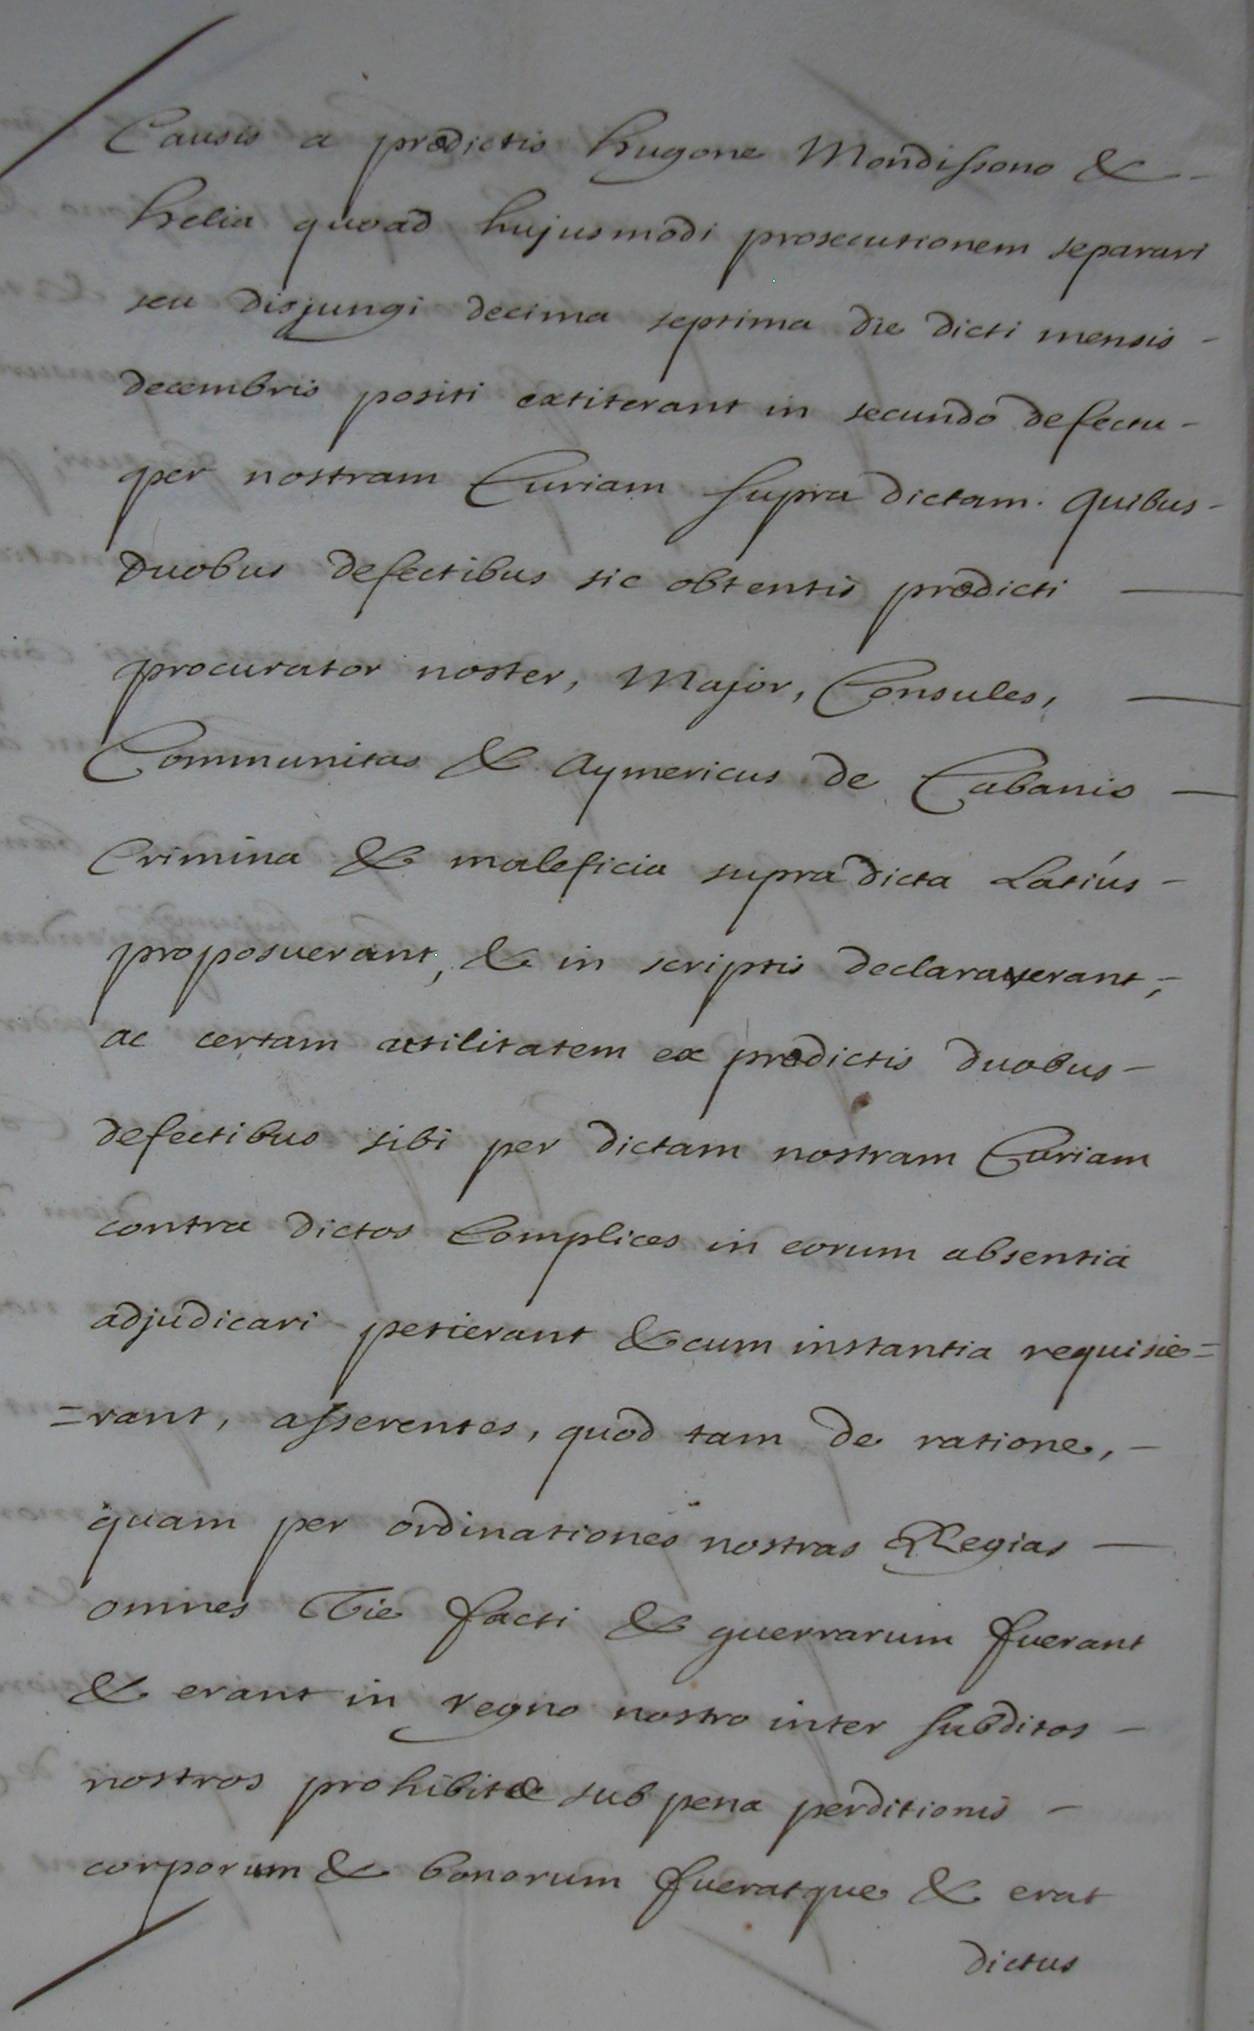 Causis a prædictis hugone Mondissono &
helia quoad hujusmodi prosecutionem separari
seu disjungi decima septima die dicti mensis -
decembris positi extiterant in secundo defectu -
per nostram Curiam supra dictam. quibus -
duobus defectibus sic obtentis prædicti —
procurator noster, Major, Consules, —
Communitas & Aymericus de Cabanis —
Crimina & maleficia supra dicta Latiús -
proposuerant, & in scriptis declaraverant, -
ac certam utilitatem ex prædictis duobus -
defectibus sibi per dictam nostram Curiam
contra dictos Complices in eorum absentia
adjudicari petierant & cum instantia requisie=
=rant, asserentes, quod tam de ratione, -
quam per ordinationes nostras Regias —
omnes Vie facti & guerrarum fuerant
& erant in regno nostro inter subditos -
nostros prohibitæ sub pena perditionis -
corporum & bonorum fueratque & erat
dictus